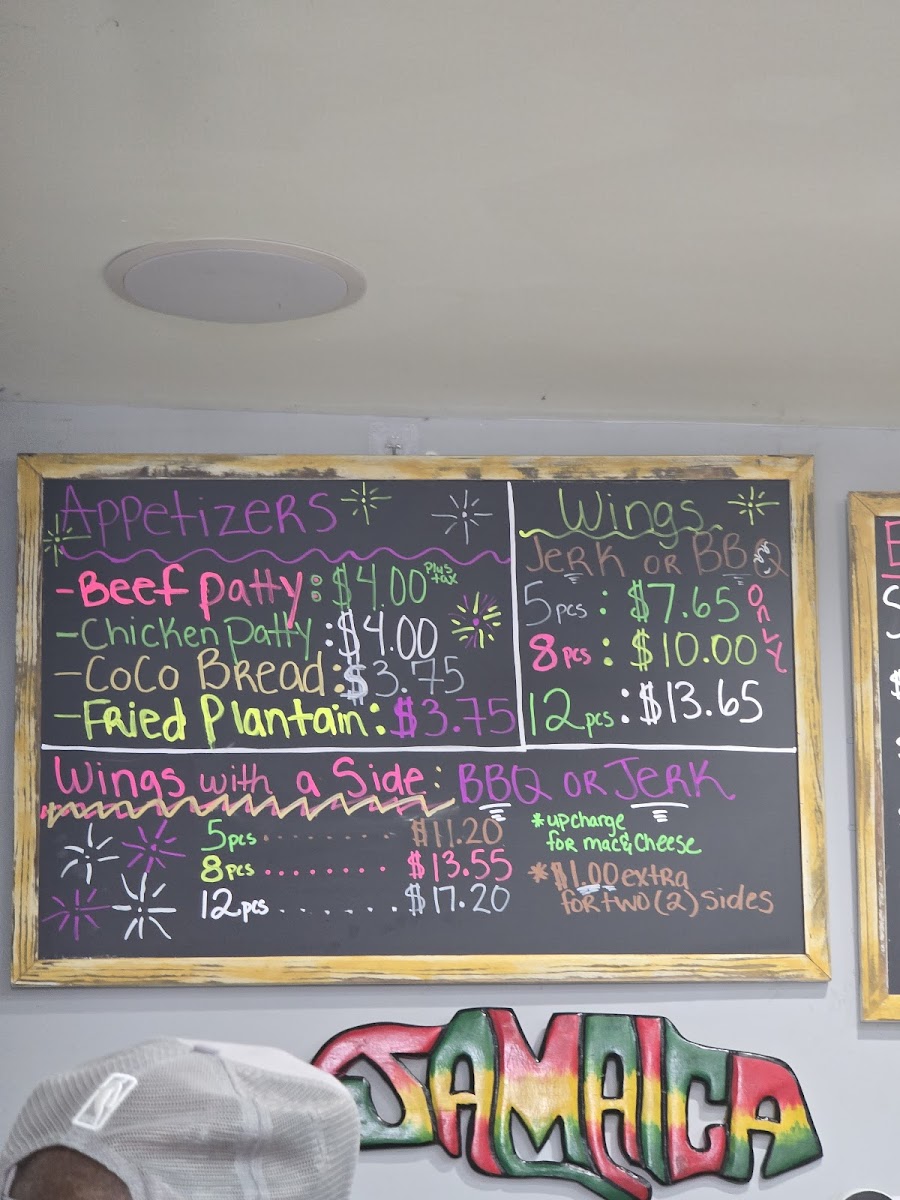 Appetizers
-Beef Patty: $4.00 Plus tax
-Chicken Patty: $4.00
-CoCo Bread: $3.75
-Fried Plantain: $3.75
Wings
Jerk or BBQ
Only
5pcs: $7.65
8pcs: $10.00
12pcs: $13.65
Wings with a Side: BBQ or Jerk
5pcs........... $11.20
8pcs......... $13.55
12pcs....... $17.20
*upcharge
for mac & Cheese
*$1.00 extra
for two (2) sides
JAMAICA